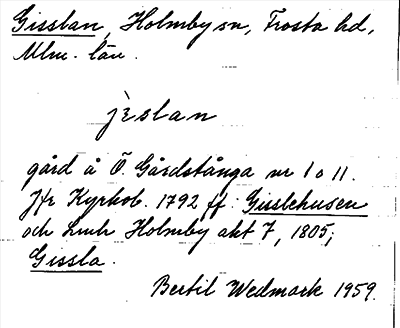 Gisslan, Holmby sn, Frosta hd,
Mlm. län.
jɛ̀slan
gård å Ö. Gårdstånga nr 1 o 11.
Jfr Kyrkob. 1792 ff: Gisslehusen
och Lmh Holmby akt 7, 1805;
Gissla.
Bertil Wedmark 1959.